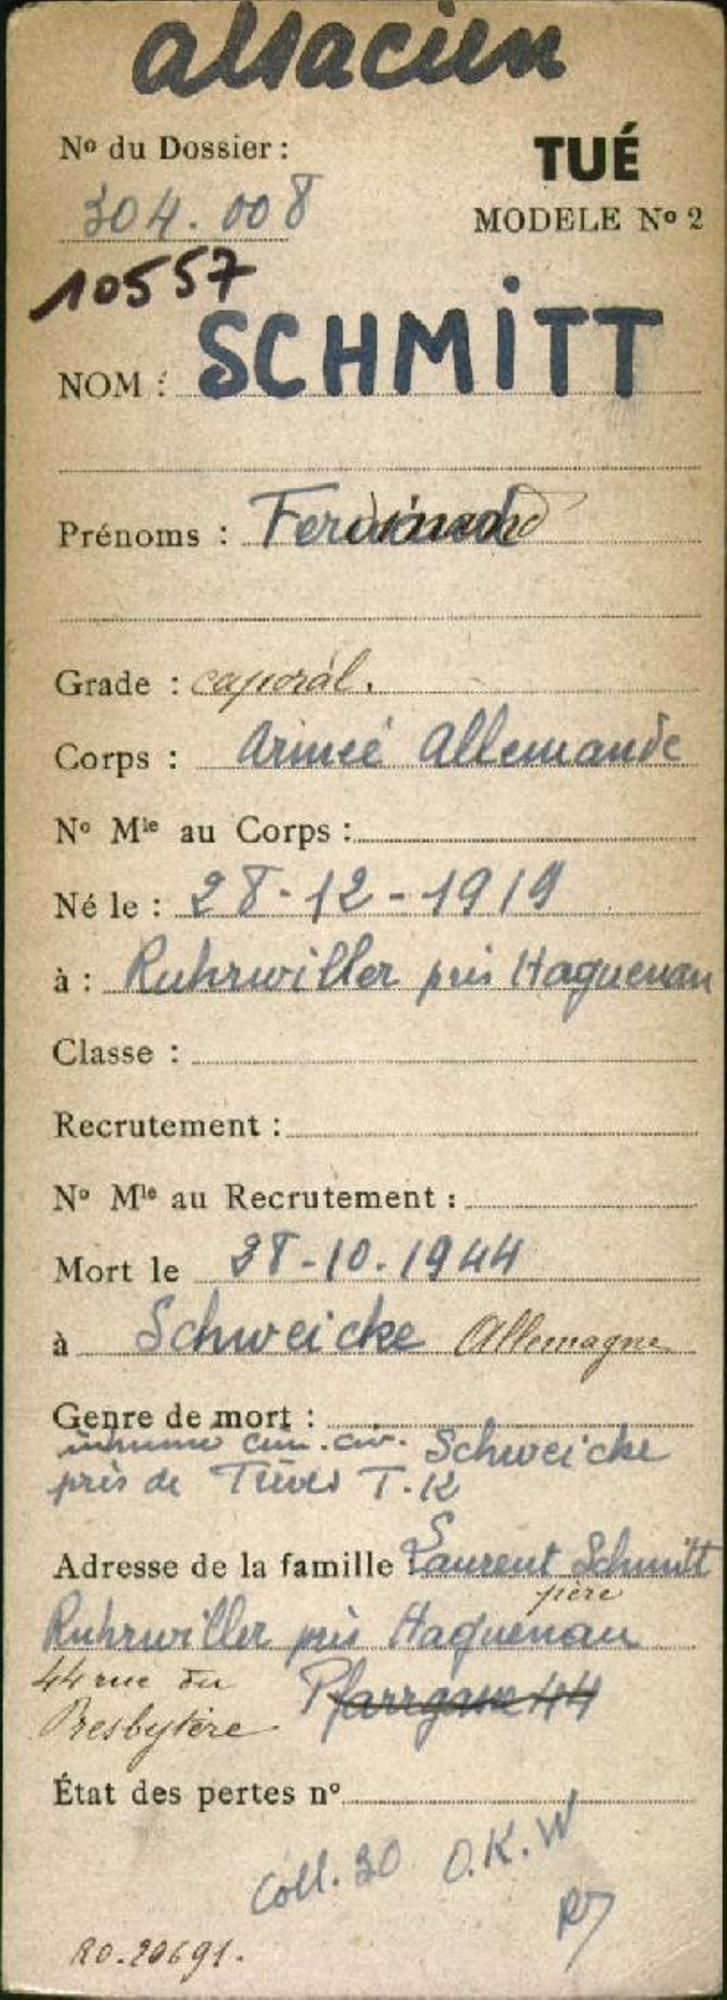 alsacien
Nº du Dossier :
TUÉ
304.008
MODELE Nº 2
10557
NOM : SCHMITT
Prénoms : Ferdinand
Grade : caporal.
Corps : Armée Allemande
Nº Mle au Corps :
Né le : 28-12-1919
à : Ruhrwiller près Haguenau
Classe :
Recrutement :
Nº Mle au Recrutement :
Mort le 28-10.1944
à Schweicke Allemagne
Genre de mort :
inhumé cim. civ. Schweiche
près de Trèves T.K
Adresse de la famille : Laurent Schmitt
père
Ruhrwiller près Haguenau
44 rue du Pfarrgasse 44
Presbytère
État des pertes nº
Coll. 30 O.K.W
RO.20691.